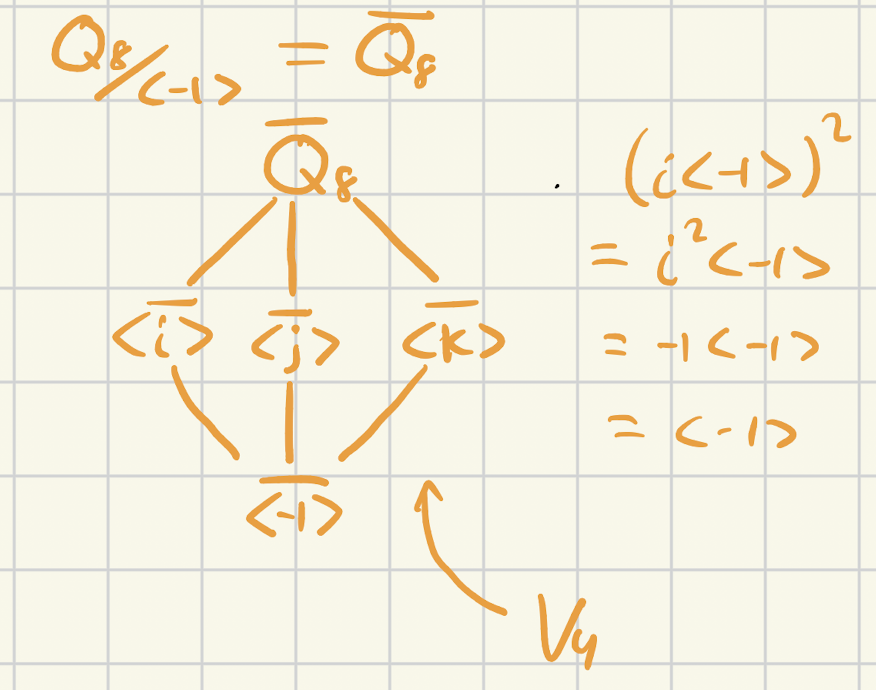 Q₈/<-1> = Q̅₈
Q̅₈
<i̅> <j̅> <k̅>
<-1>̅
V₄
(i<-1>)²
= i²<-1>
= -1<-1>
= <-1>